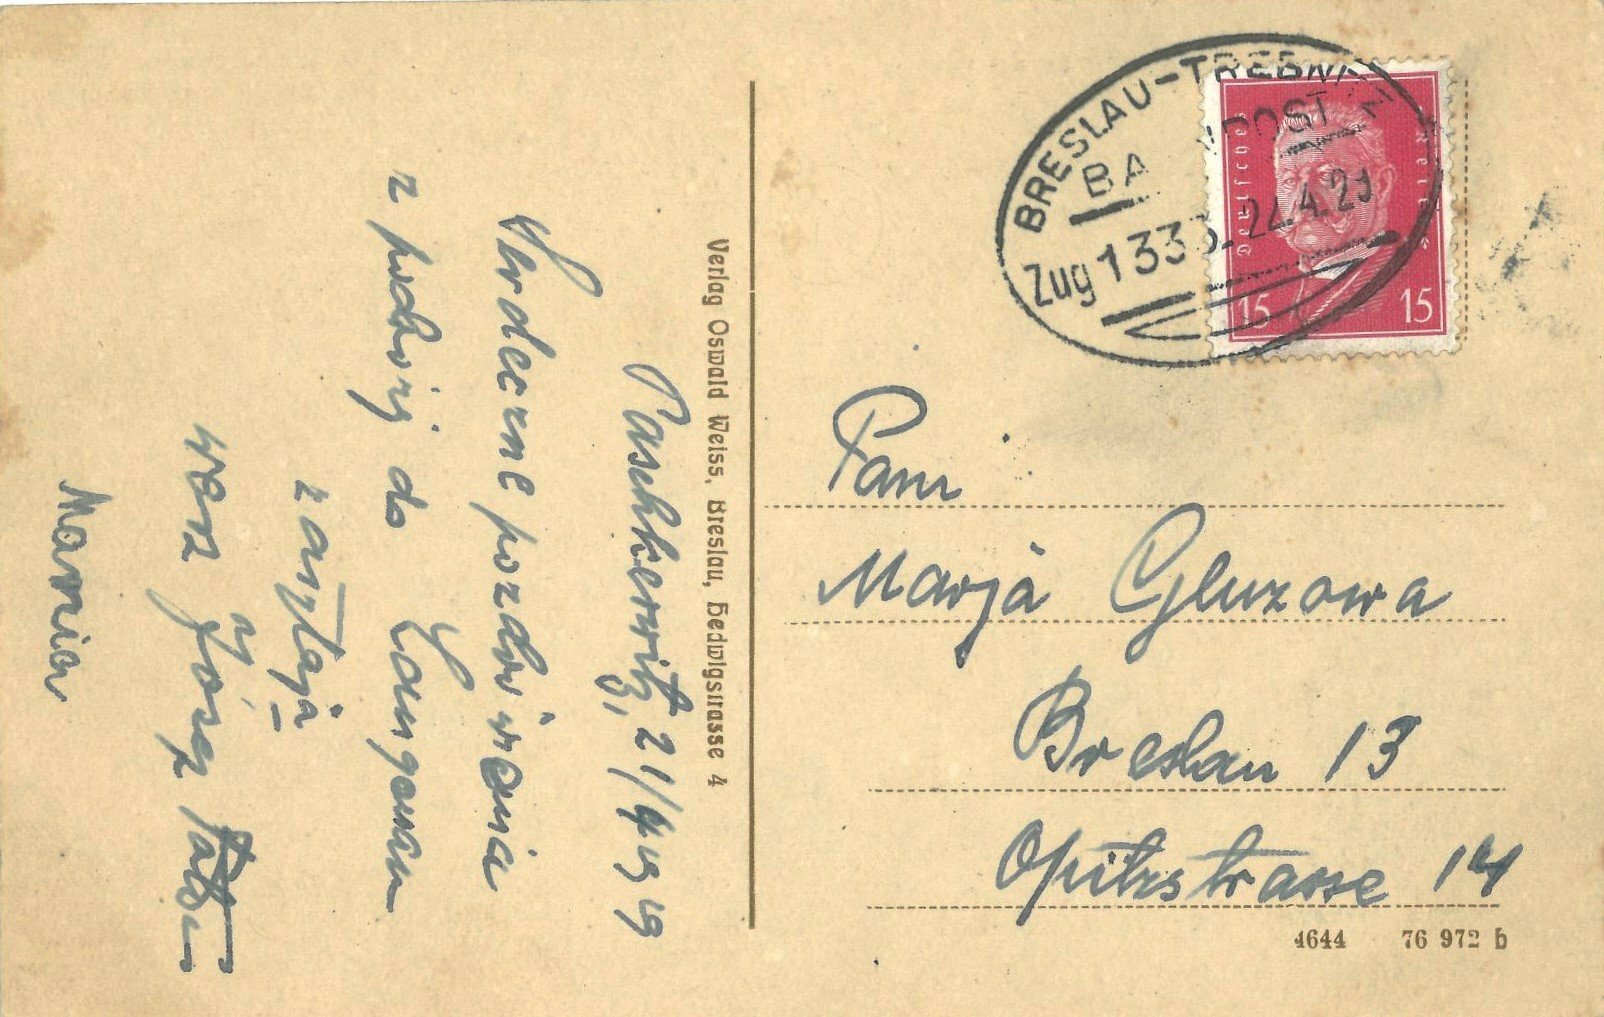 Paschkerwitz, 21/4 1929
Serdeczne pozdrowienia
z podróży do Langenau
zasyłają
Wasz Józef
Marian
Verlag Oswald Weiss, Breslau, Hedwigstrasse 4
BRESLAU-TREBNITZ
BAHNPOST
Zug 1333 22.4.29
Deutsches Reich
15 15
Pani
Marja Gluzowa
Breslau 13
Opitzstrasse 14
4644 76 972 b